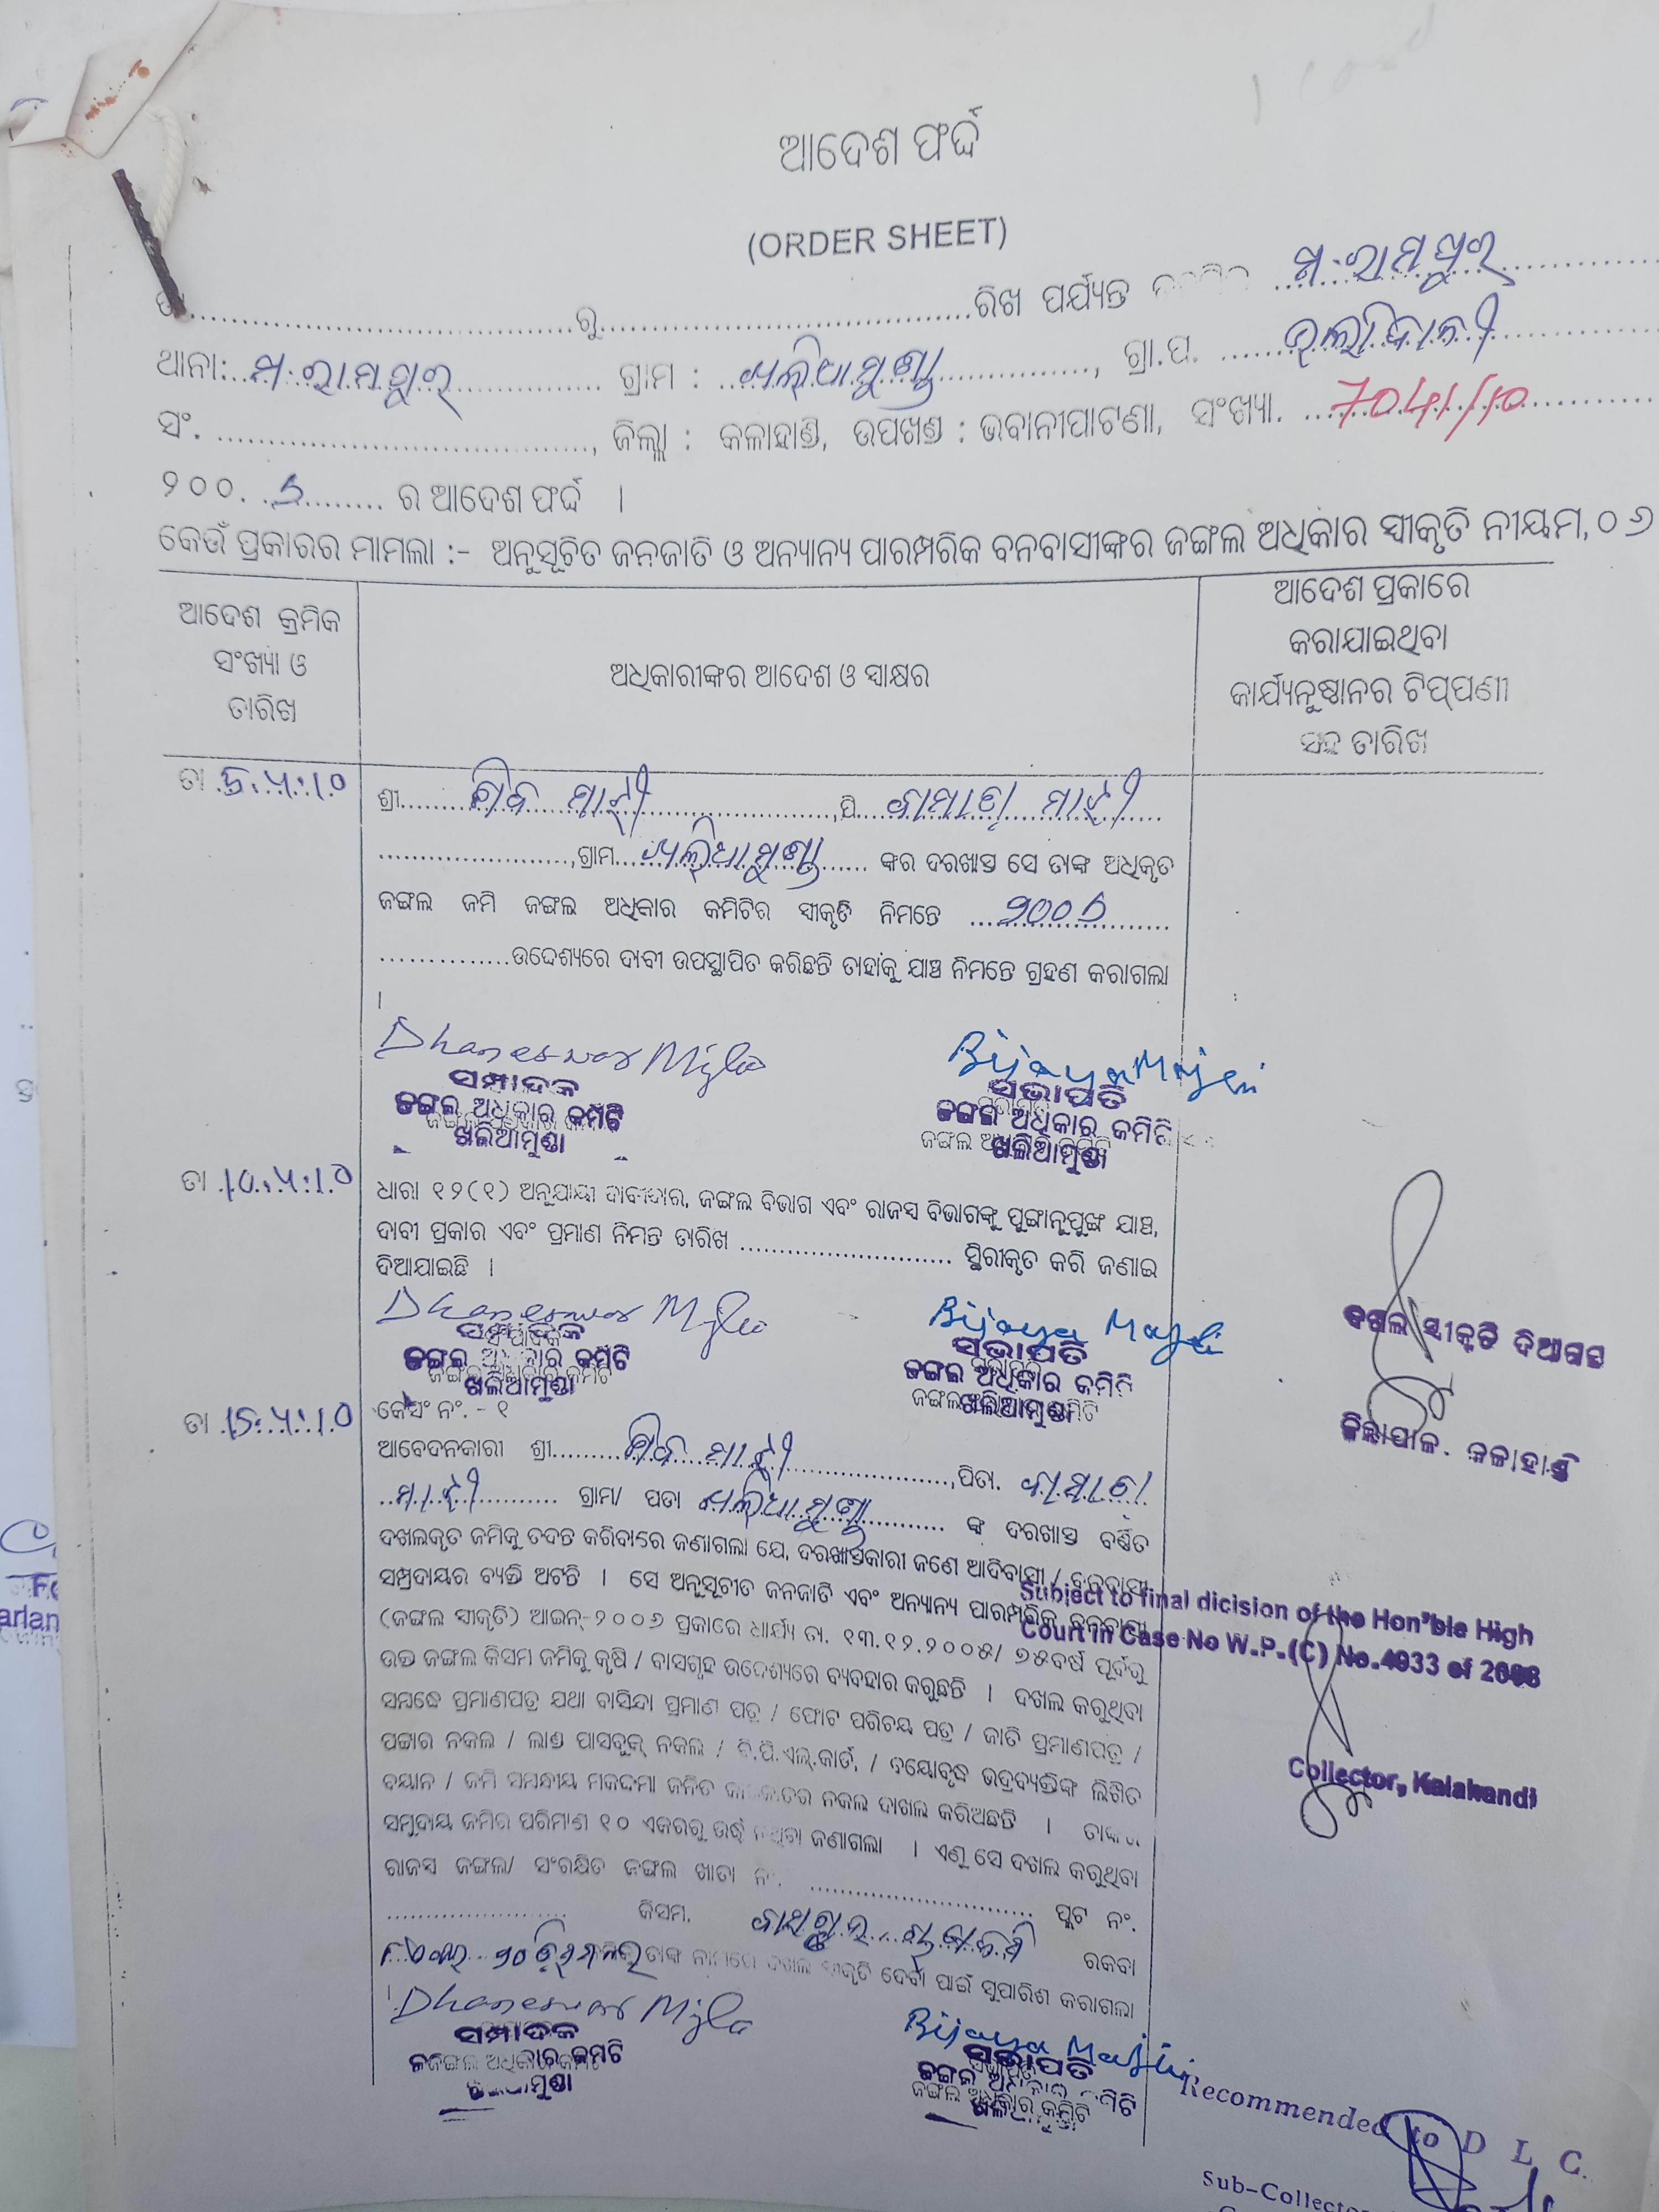 ଆଦେଶ ଫର୍ଦ୍ଦ
(ORDER SHEET)
.....................ରୁ.....................ରିଖ ପର୍ଯ୍ୟନ୍ତ ମ.ରାମପୁର
ଥାନା: ମ.ରାମପୁର ଗ୍ରାମ : ଖଲିଆମୁଣ୍ଡା, ଗ୍ରା.ପ.
ସଂ. ....................., ଜିଲ୍ଲା : କଳାହାଣ୍ଡି, ଉପଖଣ୍ଡ : ଭବାନୀପାଟଣା, ସଂଖ୍ୟା. 7041/10
୨୦୦. ......... ର ଆଦେଶ ଫର୍ଦ୍ଦ ।
କେଉଁ ପ୍ରକାରର ମାମଲା :- ଅନୁସୂଚିତ ଜନଜାତି ଓ ଅନ୍ୟାନ୍ୟ ପାରମ୍ପରିକ ବନବାସୀଙ୍କର ଜଙ୍ଗଲ ଅଧିକାର ସ୍ୱୀକୃତି ନୀୟମ, ୦୬
ଆଦେଶ କ୍ରମିକ
ସଂଖ୍ୟା ଓ
ତାରିଖ
ଅଧିକାରୀଙ୍କର ଆଦେଶ ଓ ସ୍ୱାକ୍ଷର
ଆଦେଶ ପ୍ରକାରେ
କରାଯାଇଥିବା
କାର୍ଯ୍ୟନୁଷ୍ଠାନର ଟିପ୍ପଣୀ
ସହ ତାରିଖ
ତା 5.4.10
ଶ୍ରୀ ମାଝୀ, ପି ମାଝୀ
.................,ଗ୍ରାମ ଖଲିଆମୁଣ୍ଡା ଙ୍କର ଦରଖାସ୍ତ ସେ ତାଙ୍କ ଅଧିକୃତ
ଜଙ୍ଗଲ ଜମି ଜଙ୍ଗଲ ଅଧିକାର କମିଟିର ସ୍ୱୀକୃତି ନିମନ୍ତେ
..............ଉଦ୍ଦେଶ୍ୟରେ ଦାବୀ ଉପସ୍ଥାପିତ କରିଛନ୍ତି ତାହାକୁ ଯାଞ୍ଚ ନିମନ୍ତେ ଗ୍ରହଣ କରାଗଲା
।
Dhaneswar Bijaya Majhi
ସମ୍ପାଦକ ସଭାପତି
ଜଙ୍ଗଲ ଅଧିକାର କମିଟି ଜଙ୍ଗଲ ଅଧିକାର କମିଟି
ଖଲିଆମୁଣ୍ଡା ଖଲିଆମୁଣ୍ଡା
ତା 10.4.10
ଧାରା ୧୨(୧) ଅନୁଯାୟୀ ଦାବୀଦାର, ଜଙ୍ଗଲ ବିଭାଗ ଏବଂ ରାଜସ୍ୱ ବିଭାଗଙ୍କୁ ପୁଙ୍ଖାନୁପୁଙ୍ଖ ଯାଞ୍ଚ,
ଦାବୀ ପ୍ରକାର ଏବଂ ପ୍ରମାଣ ନିମନ୍ତେ ତାରିଖ .......................... ସ୍ଥିରୀକୃତ କରି ଜଣାଇ
ଦିଆଯାଇଛି ।
Dhaneswar Bijaya Majhi
ସମ୍ପାଦକ ସଭାପତି
ଜଙ୍ଗଲ ଅଧିକାର କମିଟି ଜଙ୍ଗଲ ଅଧିକାର କମିଟି
ଖଲିଆମୁଣ୍ଡା ଖଲିଆମୁଣ୍ଡା
ଦଖଲ ସ୍ୱୀକୃତି ଦିଆଗଲା
ଜିଲ୍ଲାପାଳ. କଳାହାଣ୍ଡି
ତା 15.4.10
କେସଂ ନଂ. - ୧
ଆବେଦନକାରୀ ଶ୍ରୀ ମାଝୀ, ପିତା.
ମାଝୀ ଗ୍ରାମ/ ପଡା ଖଲିଆମୁଣ୍ଡା ଙ୍କ ଦରଖାସ୍ତ ବର୍ଣ୍ଣିତ
ଦଖଲକୃତ ଜମିକୁ ତଦନ୍ତ କରିବାରେ ଜଣାଗଲା ଯେ, ଦରଖାସ୍ତକାରୀ ଜଣେ ଆଦିବାସୀ / ବନବାସୀ
ସମ୍ପ୍ରଦାୟର ବ୍ୟକ୍ତି ଅଟନ୍ତି । ସେ ଅନୁସୂଚୀତ ଜନଜାତି ଏବଂ ଅନ୍ୟାନ୍ୟ ପାରମ୍ପରିକ ବନବାସୀ
(ଜଙ୍ଗଲ ସ୍ୱୀକୃତି) ଆଇନ୍-୨୦୦୬ ପ୍ରକାରେ ଧାର୍ଯ୍ୟ ତା. ୧୩.୧୨.୨୦୦୫/ ୭୫ବର୍ଷ ପୂର୍ବରୁ
ଉକ୍ତ ଜଙ୍ଗଲ କିସମ ଜମିକୁ କୃଷି / ବାସଗୃହ ଉଦ୍ଦେଶ୍ୟରେ ବ୍ୟବହାର କରୁଛନ୍ତି । ଦଖଲ କରୁଥିବା
ସମ୍ବନ୍ଧେ ପ୍ରମାଣପତ୍ର ଯଥା ବାସିନ୍ଦା ପ୍ରମାଣ ପତ୍ର / ଫୋଟ ପରିଚୟ ପତ୍ର / ଜାତି ପ୍ରମାଣପତ୍ର /
ପଟ୍ଟାର ନକଲ / ଲାଣ୍ଡ ପାସବୁକ୍ ନକଲ / ବି.ପି.ଏଲ୍.କାର୍ଡ, / ବୟୋବୃଦ୍ଧ ଭଦ୍ରବ୍ୟକ୍ତିଙ୍କ ଲିଖିତ
ବୟାନ / ଜମି ସମନ୍ଧୀୟ ମକଦ୍ଦମା ଜନିତ ନକଲ ଦାଖଲ କରିଅଛନ୍ତି ।
ସମୁଦାୟ ଜମିର ପରିମାଣ ୧୦ ଏକରରୁ ଉର୍ଦ୍ଧ୍ୱ ଜଣାଗଲା । ଏଣୁ ସେ ଦଖଲ କରୁଥିବା
ରାଜସ୍ୱ ଜଙ୍ଗଲ/ ସଂରକ୍ଷିତ ଜଙ୍ଗଲ ଖାତା ନଂ. ........................ ପ୍ଲଟ ନଂ.
.................... କିସମ. ରକବା
ତାଙ୍କ ଦଖଲ ସ୍ୱୀକୃତି ଦେବା ପାଇଁ ସୁପାରିଶ କରାଗଲା
।
Subject to final dicision of the Hon'ble High
Court in Case No W.P.(C) No.4933 of 2008
Collector, Kalahandi
Dhaneswar Bijaya Majhi
ସମ୍ପାଦକ ସଭାପତି
Recommended to D L C.
Sub-Collector